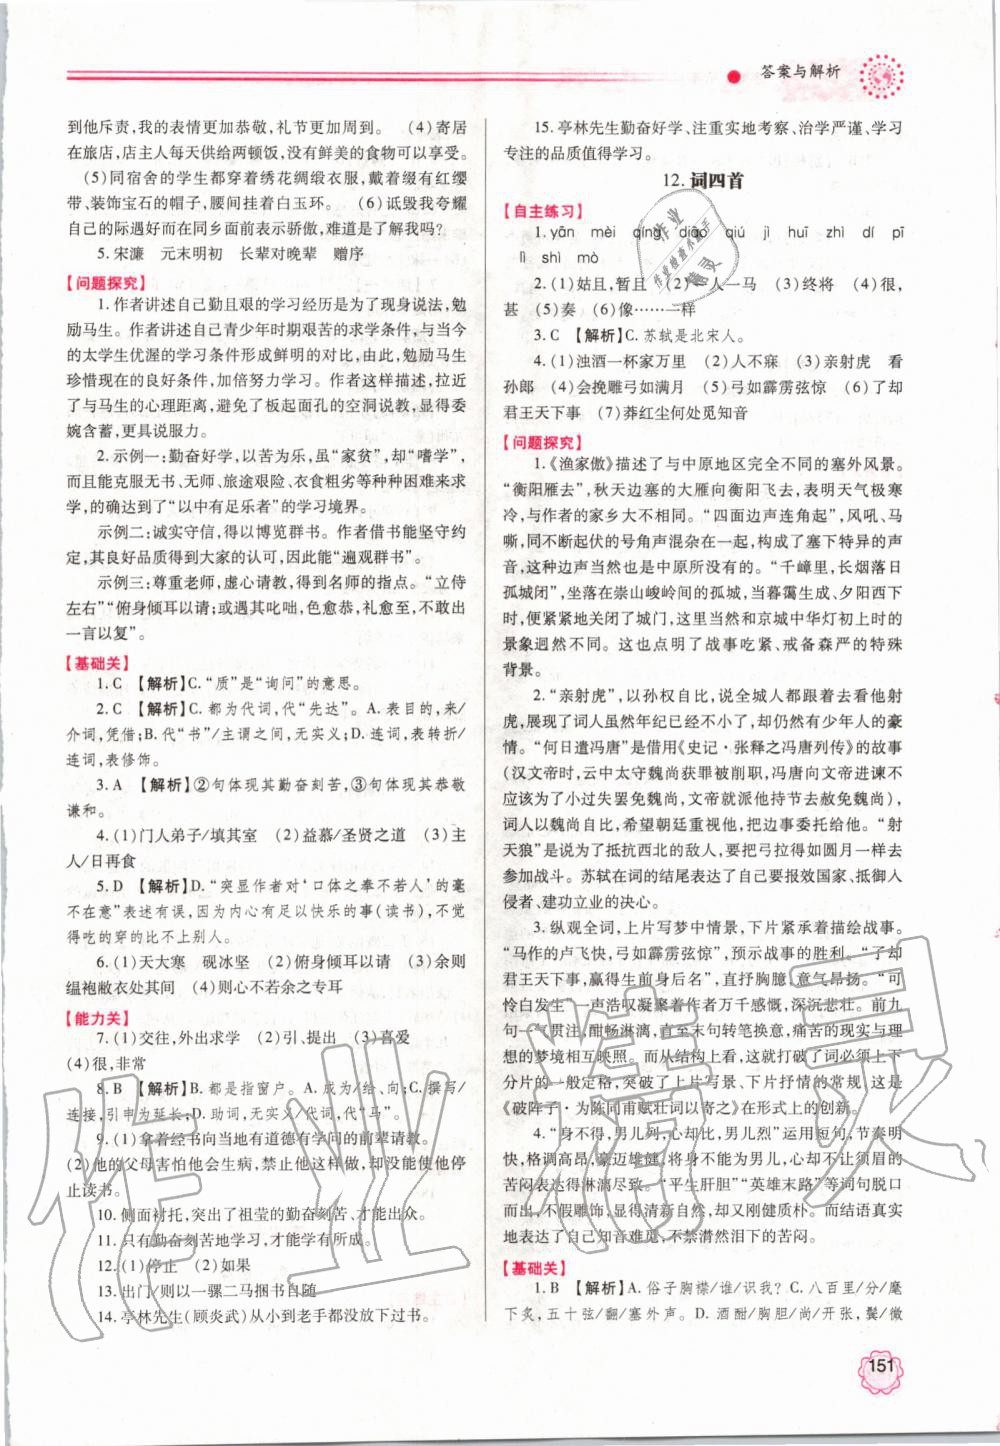 答案与解析
到他斥责,我的表情更加恭敬,礼节更加周到。 (4)寄居
在旅店,店主人每天供给两顿饭,没有鲜美的食物可共享。
(5)同宿舍的学生都穿着绣花绸缎衣服,戴着缀得红缨
带、装饰宝石的帽子,腰间挂着白玉环。 (6)诋毁我夸耀
自己的际遇好而在同乡面前表示骄傲,难道是了解我吗?
5.宋濂 元末明初 长辈对晚辈 赠序
【问题探究】
1.作者讲述自己勤且艰的学习经历是为了现身说法,勉
励马生。作者讲述自己青少年时期艰苦的求学条件,与当今
的太学生优渥的学习条件形成鲜明的对比,由此,勉励马生
珍惜现在的良好条件,加倍努力学习。作者这样描述,拉近
了与马生的心理距离,避免了板起面孔的空洞说教,显得委
婉含蓄,更具说服力。
2.示例一:勤奋好学,以苦为乐,虽“家贫”,却“嗜学”,
而且能克服无书、无师、旅途艰险、衣食粗劣等种种困难来求
学,达到了“以中有足乐者”的学习境界。
示例二:诚实守信,得以博览群书。作者借书能坚守约
定,其良好品质得到大家的认可,因此能“遍观群书”。
示例三:尊重老师,虚心请教,得到名师的指点。“立侍
左右”“俯身倾耳以请;或遇其叱咄,色愈恭,礼愈至,不敢出
一言以复”。
【基础关】
1.C 【解析】C.“质”是“询问”的意思。
2.C 【解析】C.都为代词,代“先达”。A.表目的,来/
介词,凭借;B.代“书”/主谓之间,无实义;D.连词,表转折/
连词,表修饰。
3.A 【解析】②句体现其勤奋刻苦,③句体现其恭敬
谦和。
4.(1)门人弟子/填其室 (2)益慕/圣贤之道 (3)主
人/日再食
5.D 【解析】D.“突显作者对‘口体之奉不若人’的毫
不在意”表述有误,因为内心有足以快乐的事(读书),不觉
得吃的穿的比不上别人。
6.(1)天大寒 砚冰坚 (2)俯身倾耳以请 (3)余则
缊袍敝衣处其间 (4)则心不若余之专耳
【能力关】
7.(1)交往,外出求学 (2)引,提出 (3)喜爱
(4)很,非常
8.B 【解析】B.都是指窗户。A.成为/给,向;C.撰写/
连接,引申为延长;D.助词,无实义/代词,代“马”。
9.(1)拿着经书向当地有道德有学问的前辈请教。
(2)他的父母害怕他会生病,禁止他这样,但不能使他停
止读书。
10.侧面衬托,突出了祖莹的勤奋刻苦、才能出众。
11.只有勤奋刻苦地学习,才能学有所成。
12.(1)停止 (2)如果
13.出门/则以一骡二马捆书自随
14.亭林先生(顾炎武)从小到老手都没放下过书。
15.亭林先生勤奋好学、注重实地考察、治学严谨、学习
专注的品质值得学习。
12.词四首
【自主练习】
1.yān mèi qiāng diāo qiú jì huī zī dí pī
lì shì mò
2.(1)姑且,暂且 (2)一人一马 (3)终将 (4)很,
甚 (5)奏 (6)像……一样
3.C 【解析】C.苏轼是北宋人。
4.(1)浊酒一杯家万里 (2)人不寐 (3)亲射虎 看
孙郎 (4)会挽雕弓如满月 (5)弓如霹雳弦惊 (6)了却
君王天下事 (7)莽红尘何处觅知音
【问题探究】
1.《渔家傲》描述了与中原地区完全不同的塞外风景。
“衡阳雁去”,秋天边塞的大雁向衡阳飞去,表现塞外极寒
冷,与作者的家乡大不相同。“四面边声连角起”,风吼、马
嘶,间杂低沉的号角声混杂在一起,构成了塞下特异的声
音,这种边声当然也是中原听不到的。“千嶂里,长烟落日
孤城闭”,坐落在崇山峻岭间的孤城,当暮霭生成、夕阳西下
时,便紧紧地关闭了城门,这当然和京城中华灯初上时的
景象迥然不同。这也点明了战事吃紧、戒备森严的特殊
背景。
2.“亲射虎”,以孙权自比,说全城人都跟去看他射
虎,展现了词人虽然年纪已经不小了,却仍然有少年人的豪
情。“何日遣冯唐”是借用《史记·张释之冯唐列传》的故事
(汉文帝时,云中太守魏尚获罪被削职,冯唐向文帝进谏不
应该为了小失罢免魏尚,文帝就派他持节去赦免魏尚),
词人以魏尚自比,希望朝廷重视他,把边事委托给他。“射
天狼”是说为了抵抗西北的敌人,要把弓拉得如圆月一样去
参加战斗。苏轼在词的结尾表达了自己要报效国家、抵御人
侵者、建功立业的决心。
3.纵观全词,上片写梦中情景,下片紧承着描绘战事。
“马作的卢飞快,弓如霹雳弦惊”,预示战事的胜利。“了却
君王天下事,赢得生前身后名”,直抒胸臆、意气昂扬。“可
怜白发生”一声浩叹凝聚着作者万千感慨,深沉悲壮。前九
句一气贯注,酣畅淋漓,直至末句转笔换意,痛苦的现实与理
想的梦境相互映照。而从结构上看,这又打破了词必须上下
分片的一般定格,突破了上片写景、下片抒情的常规,这是
《破阵子·为陈同甫赋壮词以寄之》在形式上的创新。
4.“身不得,男儿列,心却比,男儿烈”运用短句,节奏明
快,格调高昂、豪迈雄健,将满腔热忱却不得不屈居须眉的
苦闷表达得淋漓尽致。“平生肝胆”“英雄末路”等词句脱口
而出,用得新奇,却显得清新自然、却又刚健质朴。而结语真实
地表达了自己知音难觅,不禁潸然泪下的苦闷。
【基础关】
1.B 【解析】A.俗子胸襟/谁/识我? C.八百里/分/麾
下炙,五十弦/翻/塞外声。D.酒酣/胸胆/尚/开张,鬓/微
151
作业精灵